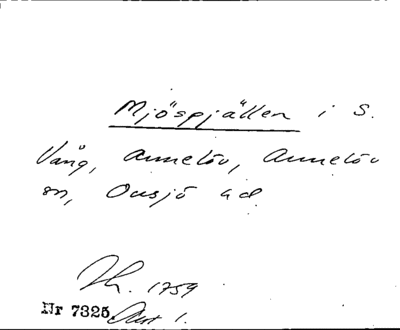 Mjöspjällen i S.
Vång, Annelöv, Annelöv
sn, Onsjö hd
1759
Nr 7325. 1.